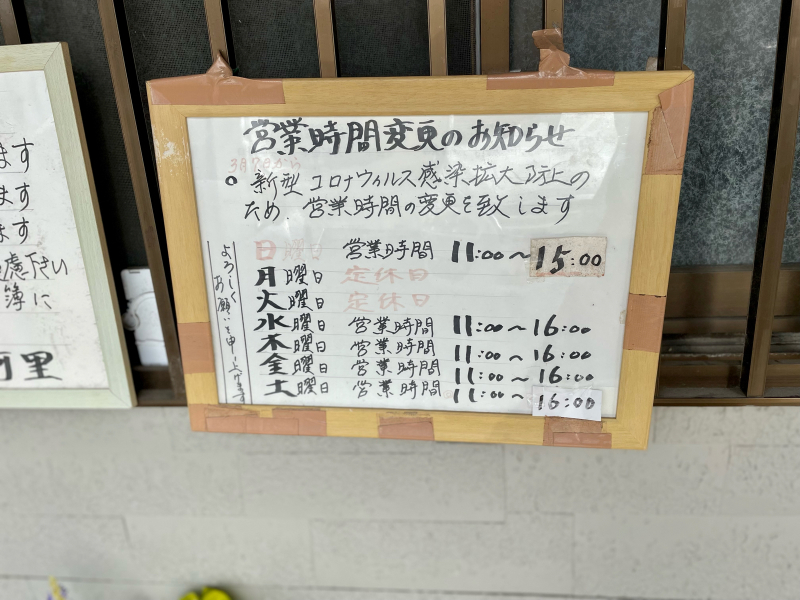 営業時間変更のお知らせ
3月7日から
○ 新型コロナウィルス感染拡大防止の
ため、営業時間の変更を致します
日曜日 営業時間 11:00～15:00
月曜日 定休日
火曜日 定休日
水曜日 営業時間 11:00～16:00
木曜日 営業時間 11:00～16:00
金曜日 営業時間 11:00～16:00
土曜日 営業時間 11:00～16:00
よろしく
お願いを申し上げます
ます
ます
ます
慮下さい
簿に
里